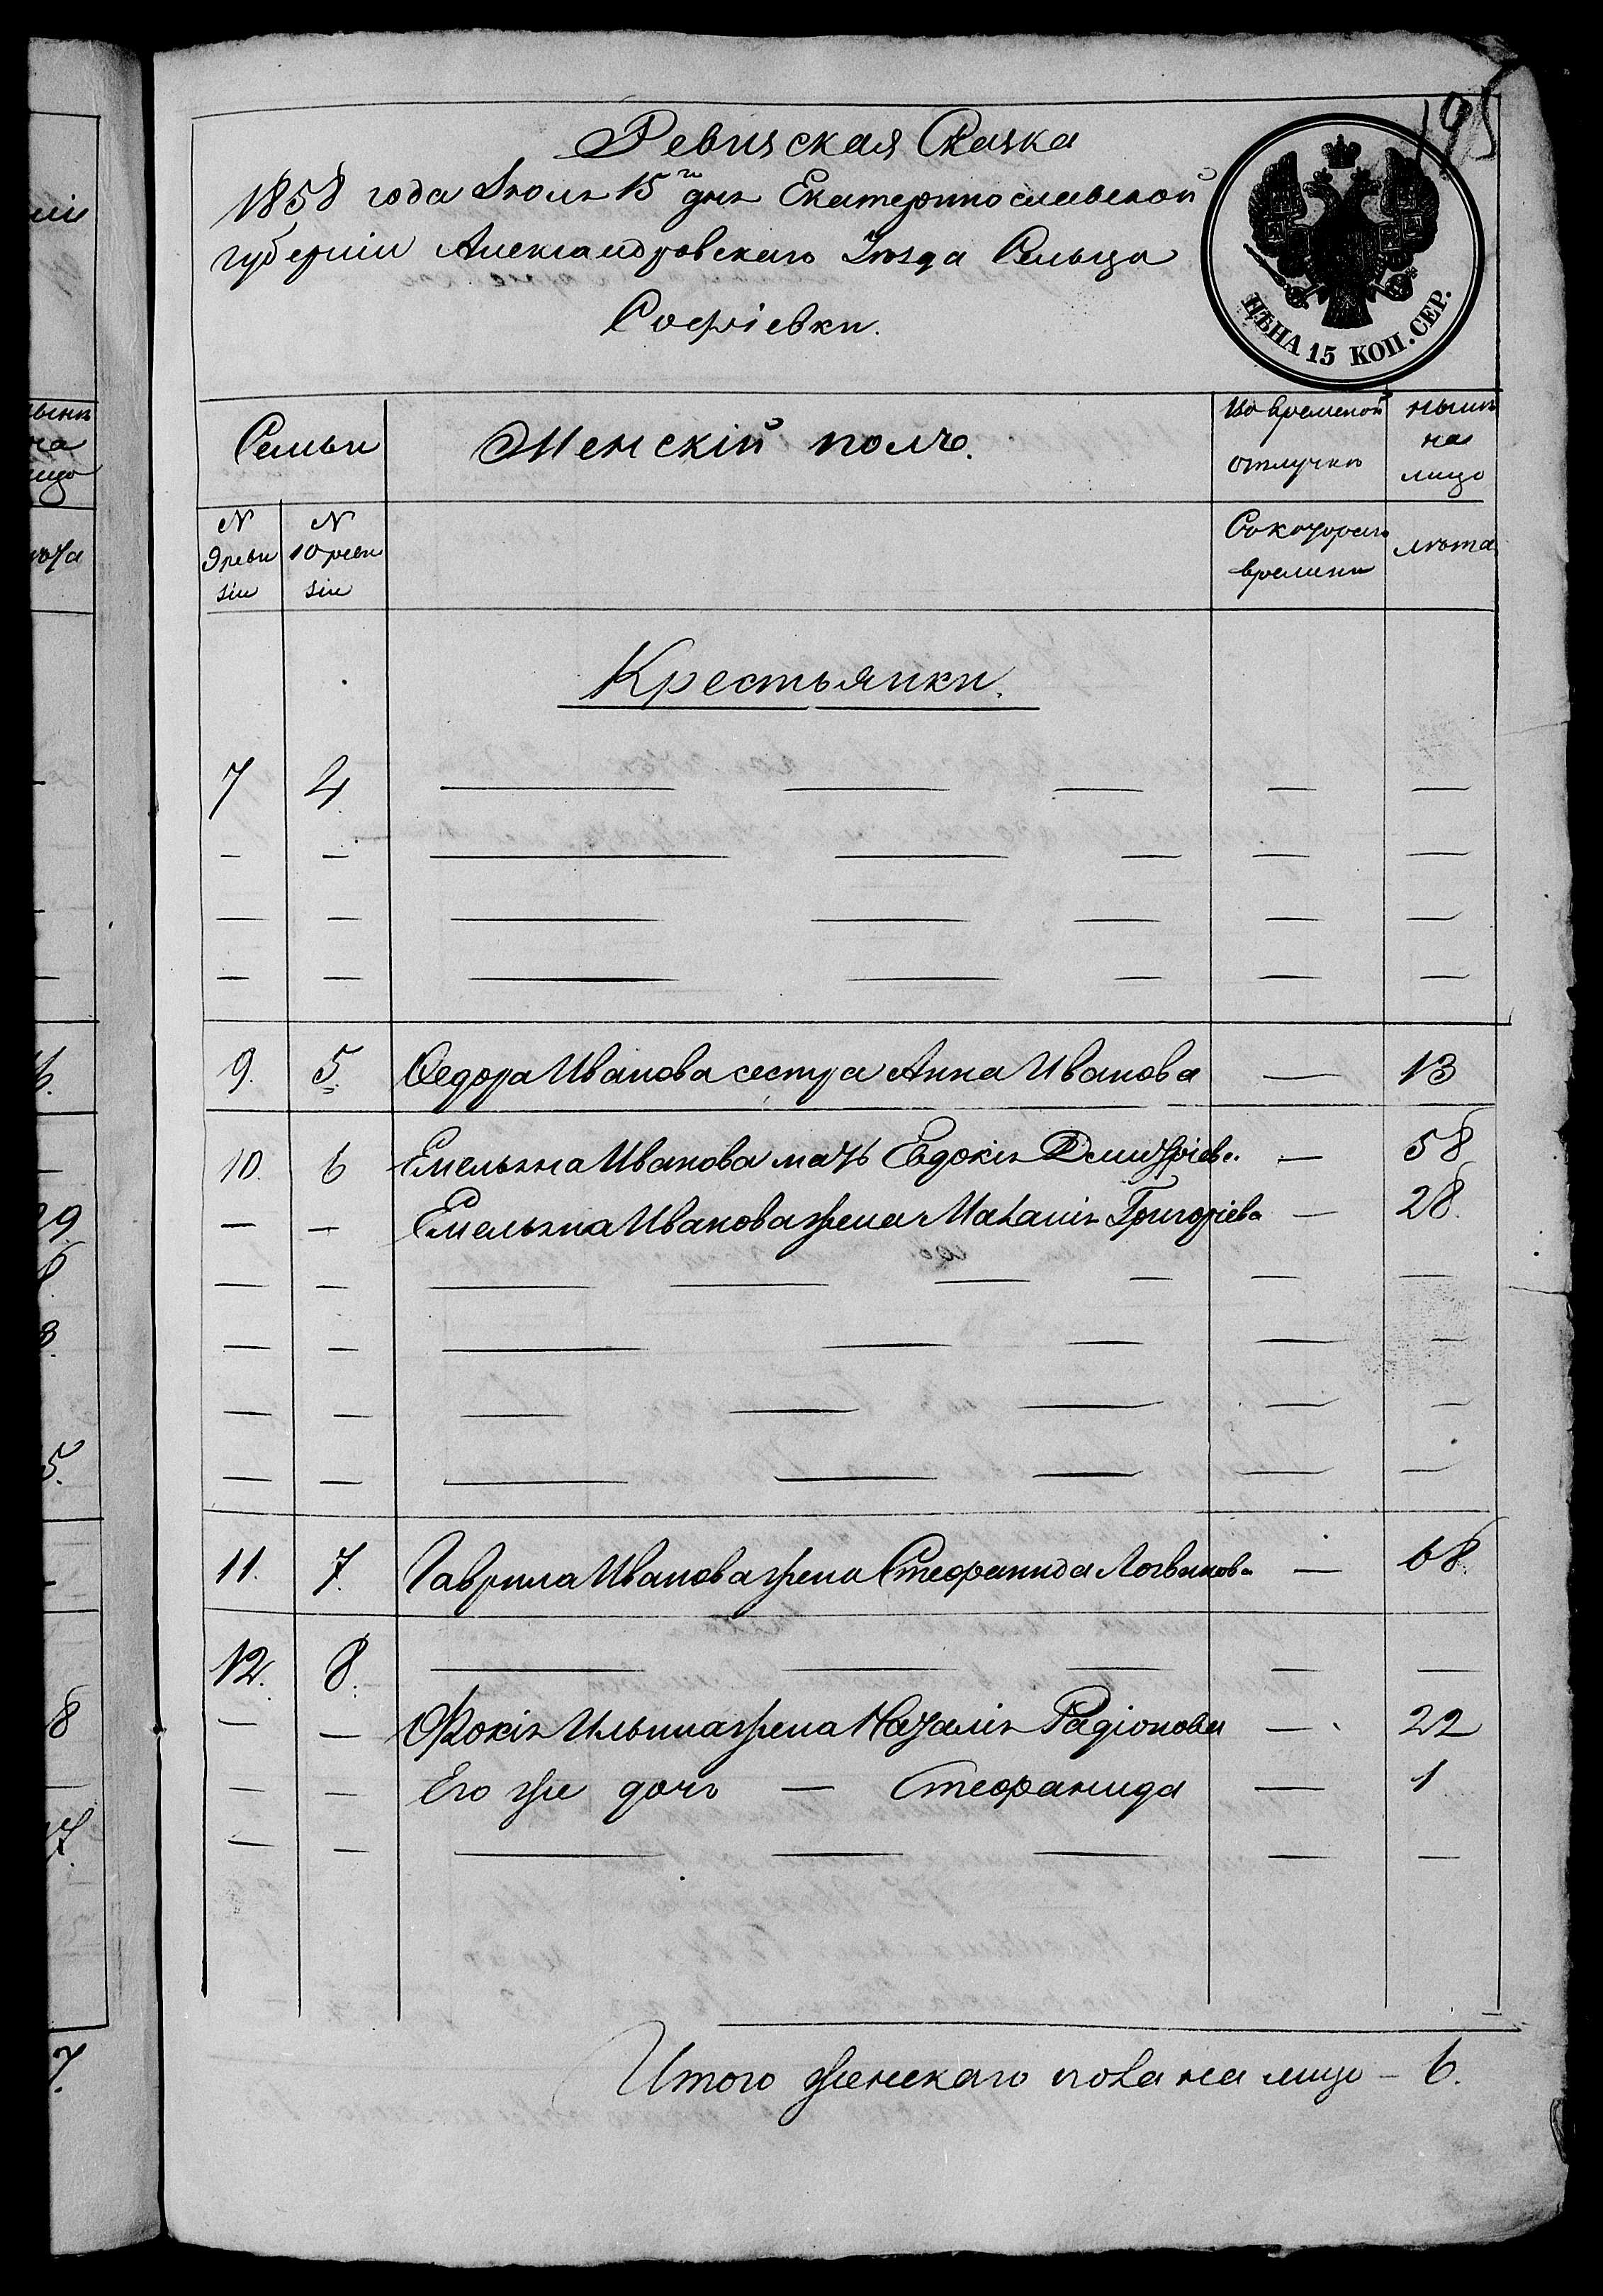 195
Ревизская Сказка
1858 года Iюля 15го дня Екатеринославской
губернiи Александровскаго Уѣзда Сельца
Софiевки.
ЦѢНА 15 КОП. СЕР.
Семьи Женскiй полъ. Во временой отлучкѣ нынѣ на лицо
N 9 реви зiи N 10 реви зiи Съ котораго времени лѣта
Крестьянки.
7 4 — — — — —
— — — — — — —
— — — — — — —
— — — — — — —
9. 5. Федора Иванова сестра Анна Иванова — 13
10. 6 Емельяна Иванова мать Евдокiя Дмитрiева — 58
— — Емельяна Иванова жена Маланiя Григорiева — 28.
— — — — — — — —
— — — — — — —
— — — — — — —
— — — — — — —
11. 7. Гаврила Иванова жена Стефанида Логвинова — 68.
12. 8. — — — — —
— — Фокiя Ильина жена Наталiя Радiонова — 22
— — Его же дочь — Стефанида — 1
— — — — — — —
Итого женскаго пола на лицо – 6.